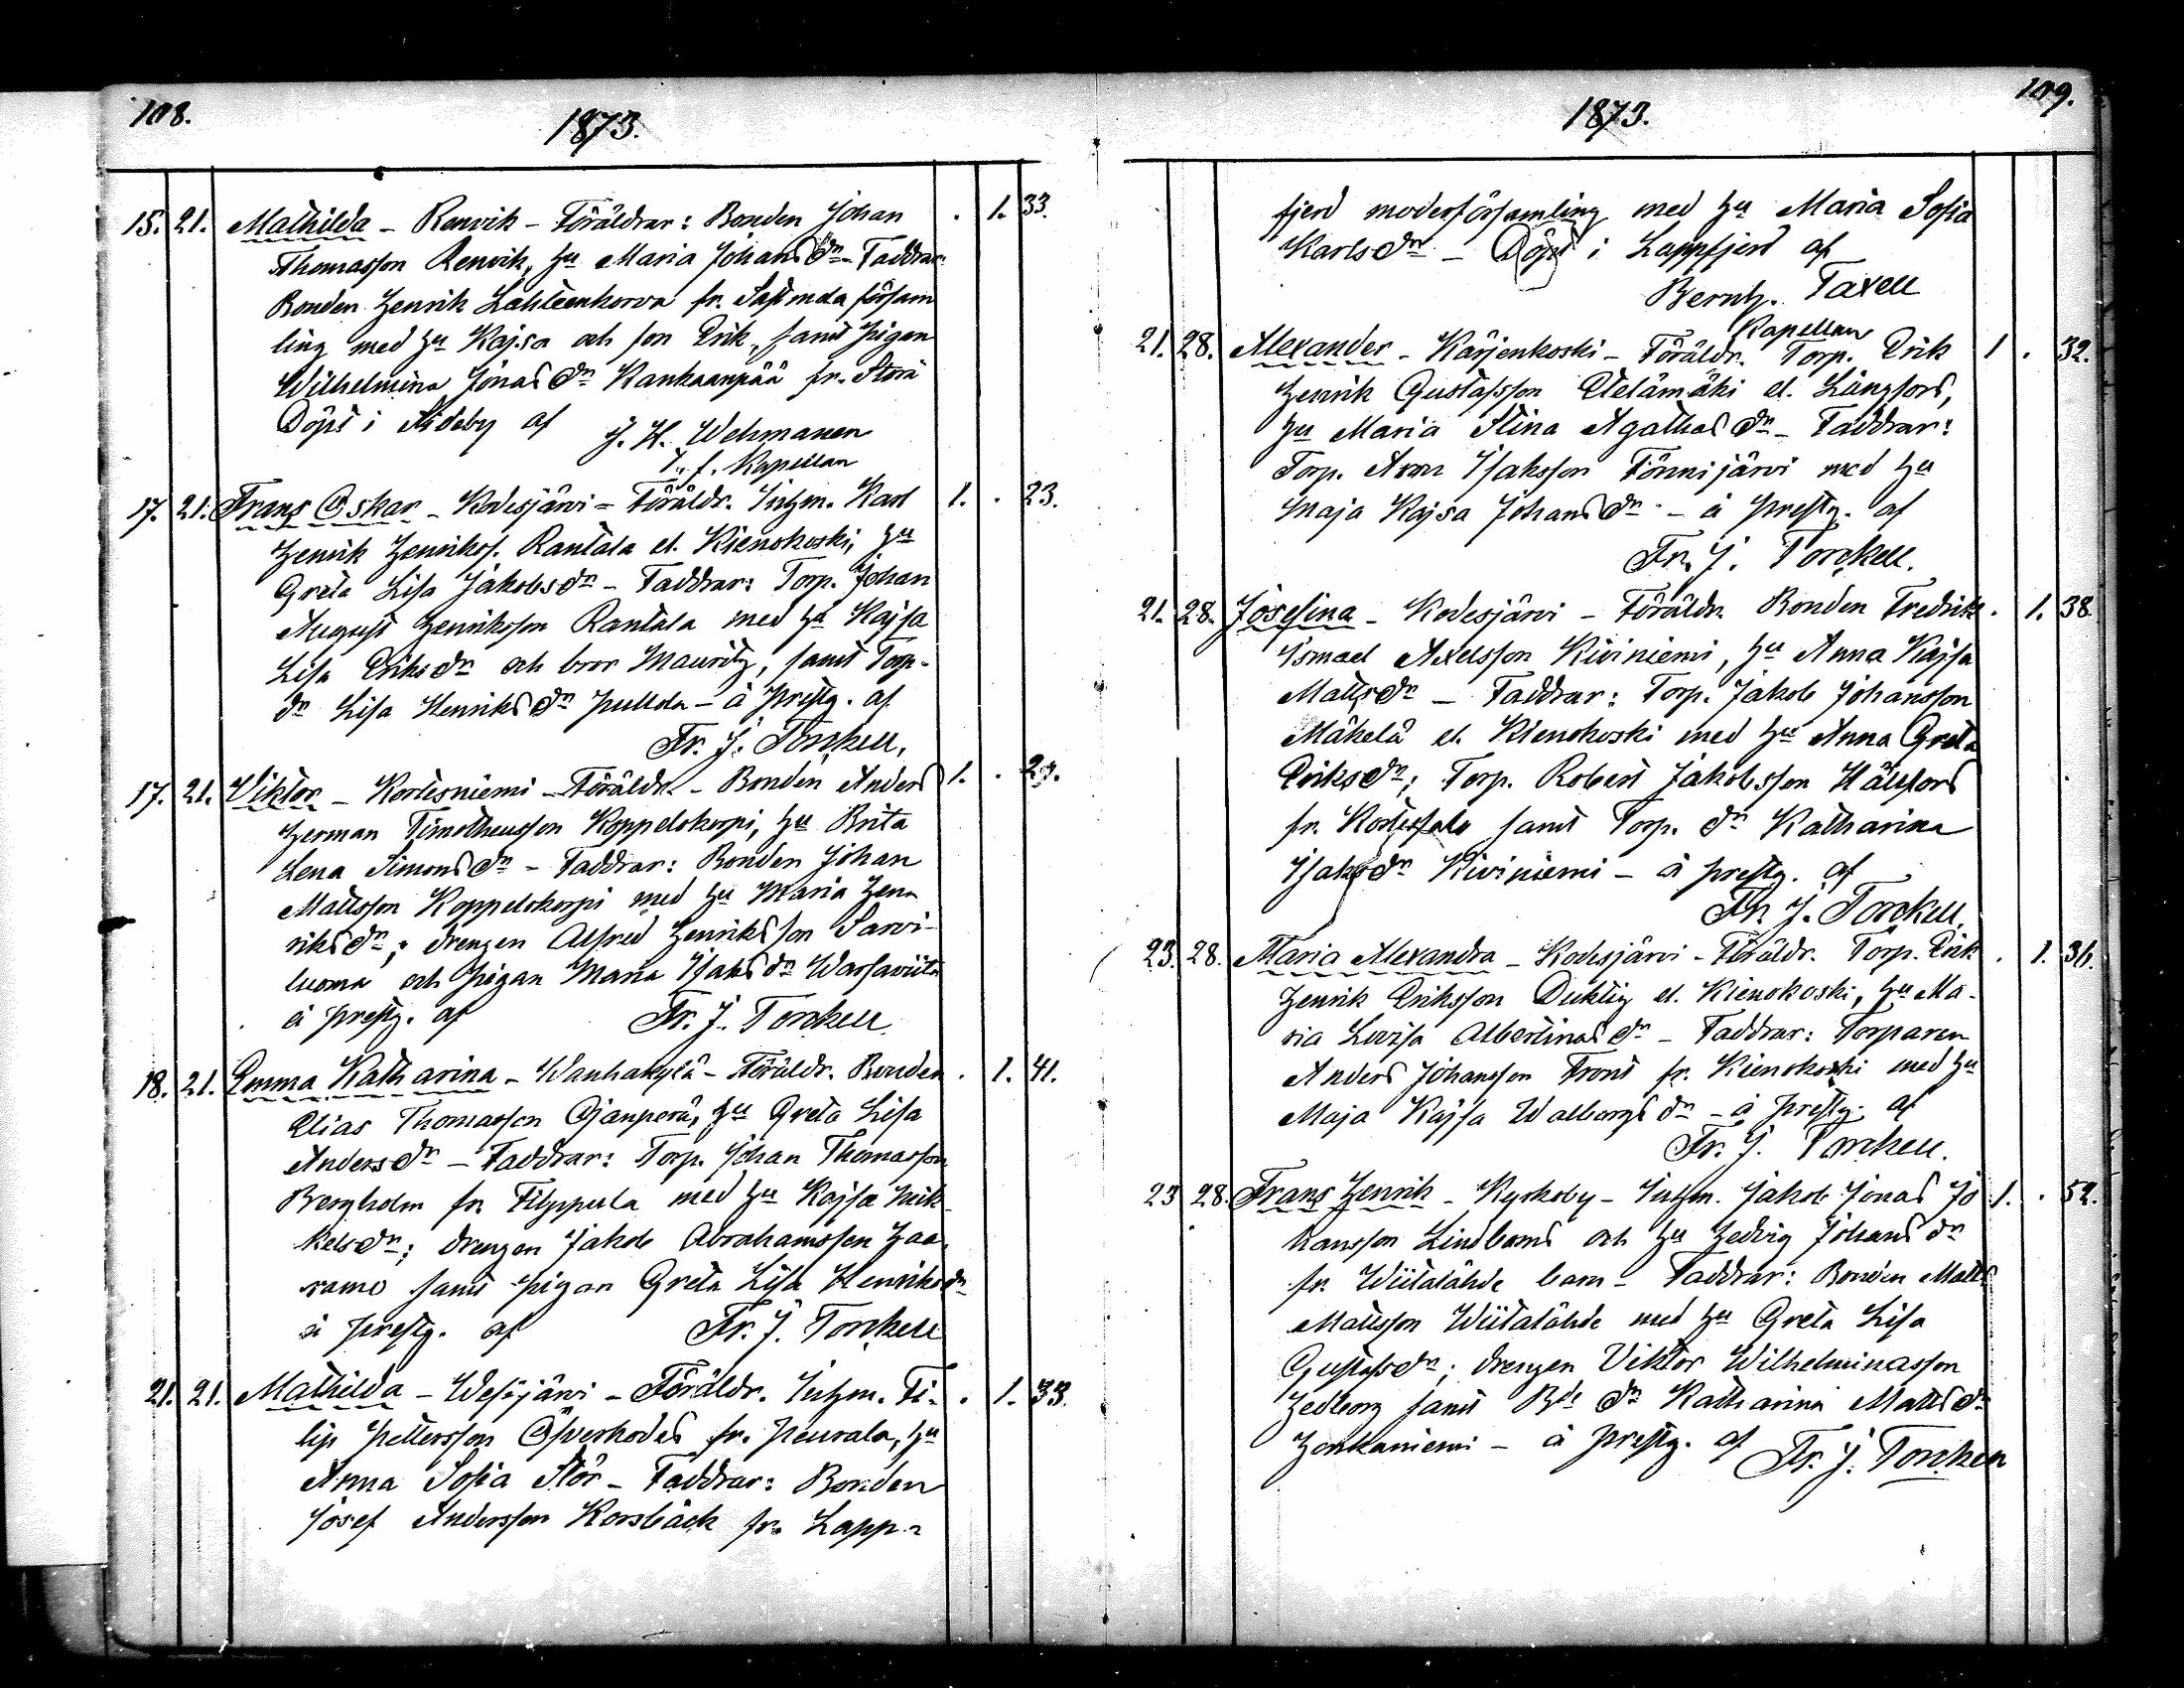 108.
1873.
15. 21. Mathilda - Renvik - Föräldrar: Bonden Johan . 1. 33.
Thomasson Renvik, hu Maria Johans dr - Faddrar:
Bonden Henrik Lahteenkorva fr. Sastmola försam
ling med hu Kajsa och son Erik, samt pigan
Wilhelmina Jonas dr Kankaanpää fr. Storå
Döpt i Sideby af J. H. Wehmanen
T. f. Kapellan
17. 21. Frans Oskar - Kodesjärvi - Föräldr. Inhm. Karl 1. . 23.
Henrik Henrikss. Rantala el. Kienokoski, hu
Greta Lisa Jakobs dr - Faddrar: Torp. Johan
August Henriksson Rantala med hu Kajsa
Lisa Eriks dr och bror Mauritz, samt Torp.
dr Lisa Henriks dr Pullola - å prestg. af
Fr. J. Torckell.
17. 21. Viktor - Kortesniemi - Föräldr. - Bonden Anders 1. . 27.
Herman Timotheusson Koppelokorpi, hu Brita
Lena Simons dr - Faddrar: Bonden Johan
Mattsson Koppelokorpi med hu Maria Hen
riks dr; drengen Alfred Henriksson Sarvi-
luoma och pigan Maria Isaks dr
å prestg. af Fr. J. Torckell
18. 21. Emma Katharina - Wanhakylä - Föräldr. Bonden . 1. 41.
Elias Thomasson Ojanperä, hu Greta Lisa
Anders dr - Faddrar: Torp. Johan Thomasson
Bergholm fr. Filppula med hu Kajsa Mik-
kels dr; drengen Jakob Abrahamsson Haa-
ramo samt pigan Greta Lisa Henriks dr
å prestg. af Fr. J. Torckell
21. 21. Mathilda - Wesijärvi - Föräldr. Inhm. Fi- . 1. 33.
lip Pettersson Öfverkodes fr. Peurala, hu
Anna Sofia Stör - Faddrar: Bonden
Josef Andersson Korsbäck fr. Lapp-
109.
1873.
fjerd moderförsamling med hu Maria Sofia
Karls dr - Döpt i Lappfjerd af
Bernh. Taxell
Kapellan
21. 28. Alexander - Kärjenkoski - Föräldr. Torp. Erik 1 . 32.
Henrik Gustafsson Etelämäki el. Långfors,
hu Maria Stina Agathas dr - Faddrar:
Torp. Aron Isaksson Fönnijärvi med hu
Maja Kajsa Johans dr - å prestg. af
Fr. J. Torckell.
21. 28. Josefina - Kodesjärvi - Föräldr. Bonden Fredrik . 1. 38.
Ismael Axelsson Kiviniemi, hu Anna Kajsa
Matts dr - Faddrar: Torp. Jakob Johansson
Mäkelä el. Kienokoski med hu Anna Greta
Eriks dr; Torp. Robert Jakobsson Hällfors
fr. samt Torp. dr Katharina
Isaks dr Kiviniemi - å prestg. af
Fr. J. Torckell.
23. 28. Maria Alexandra - Kodesjärvi - Föräldr. Torp. Erik . 1. 36.
Henrik Eriksson Duktig el. Kienokoski, hu Ma-
ria Lovisa Albertinas dr - Faddrar: Torparen
Anders Johansson Front fr. Kienokoski med hu
Maja Kajsa Walborgs dr - å prestg. af
Fr. J. Torckell.
23 28. Frans Henrik - Kyrkoby - Inhm. Jakob Jonas Jo 1. . 52.
hansson Lindboms och hu Hedvig Johans dr
fr. Wiitalähde barn - Faddrar: Bonden Matts
Mattsson Wiitalähde med hu Greta Lisa
Gustafs dr; drengen Viktor Wilhelminasson
Hedberg samt Bds dr Katharina Matts dr
Honkaniemi - å prestg. af Fr. J. Torckell